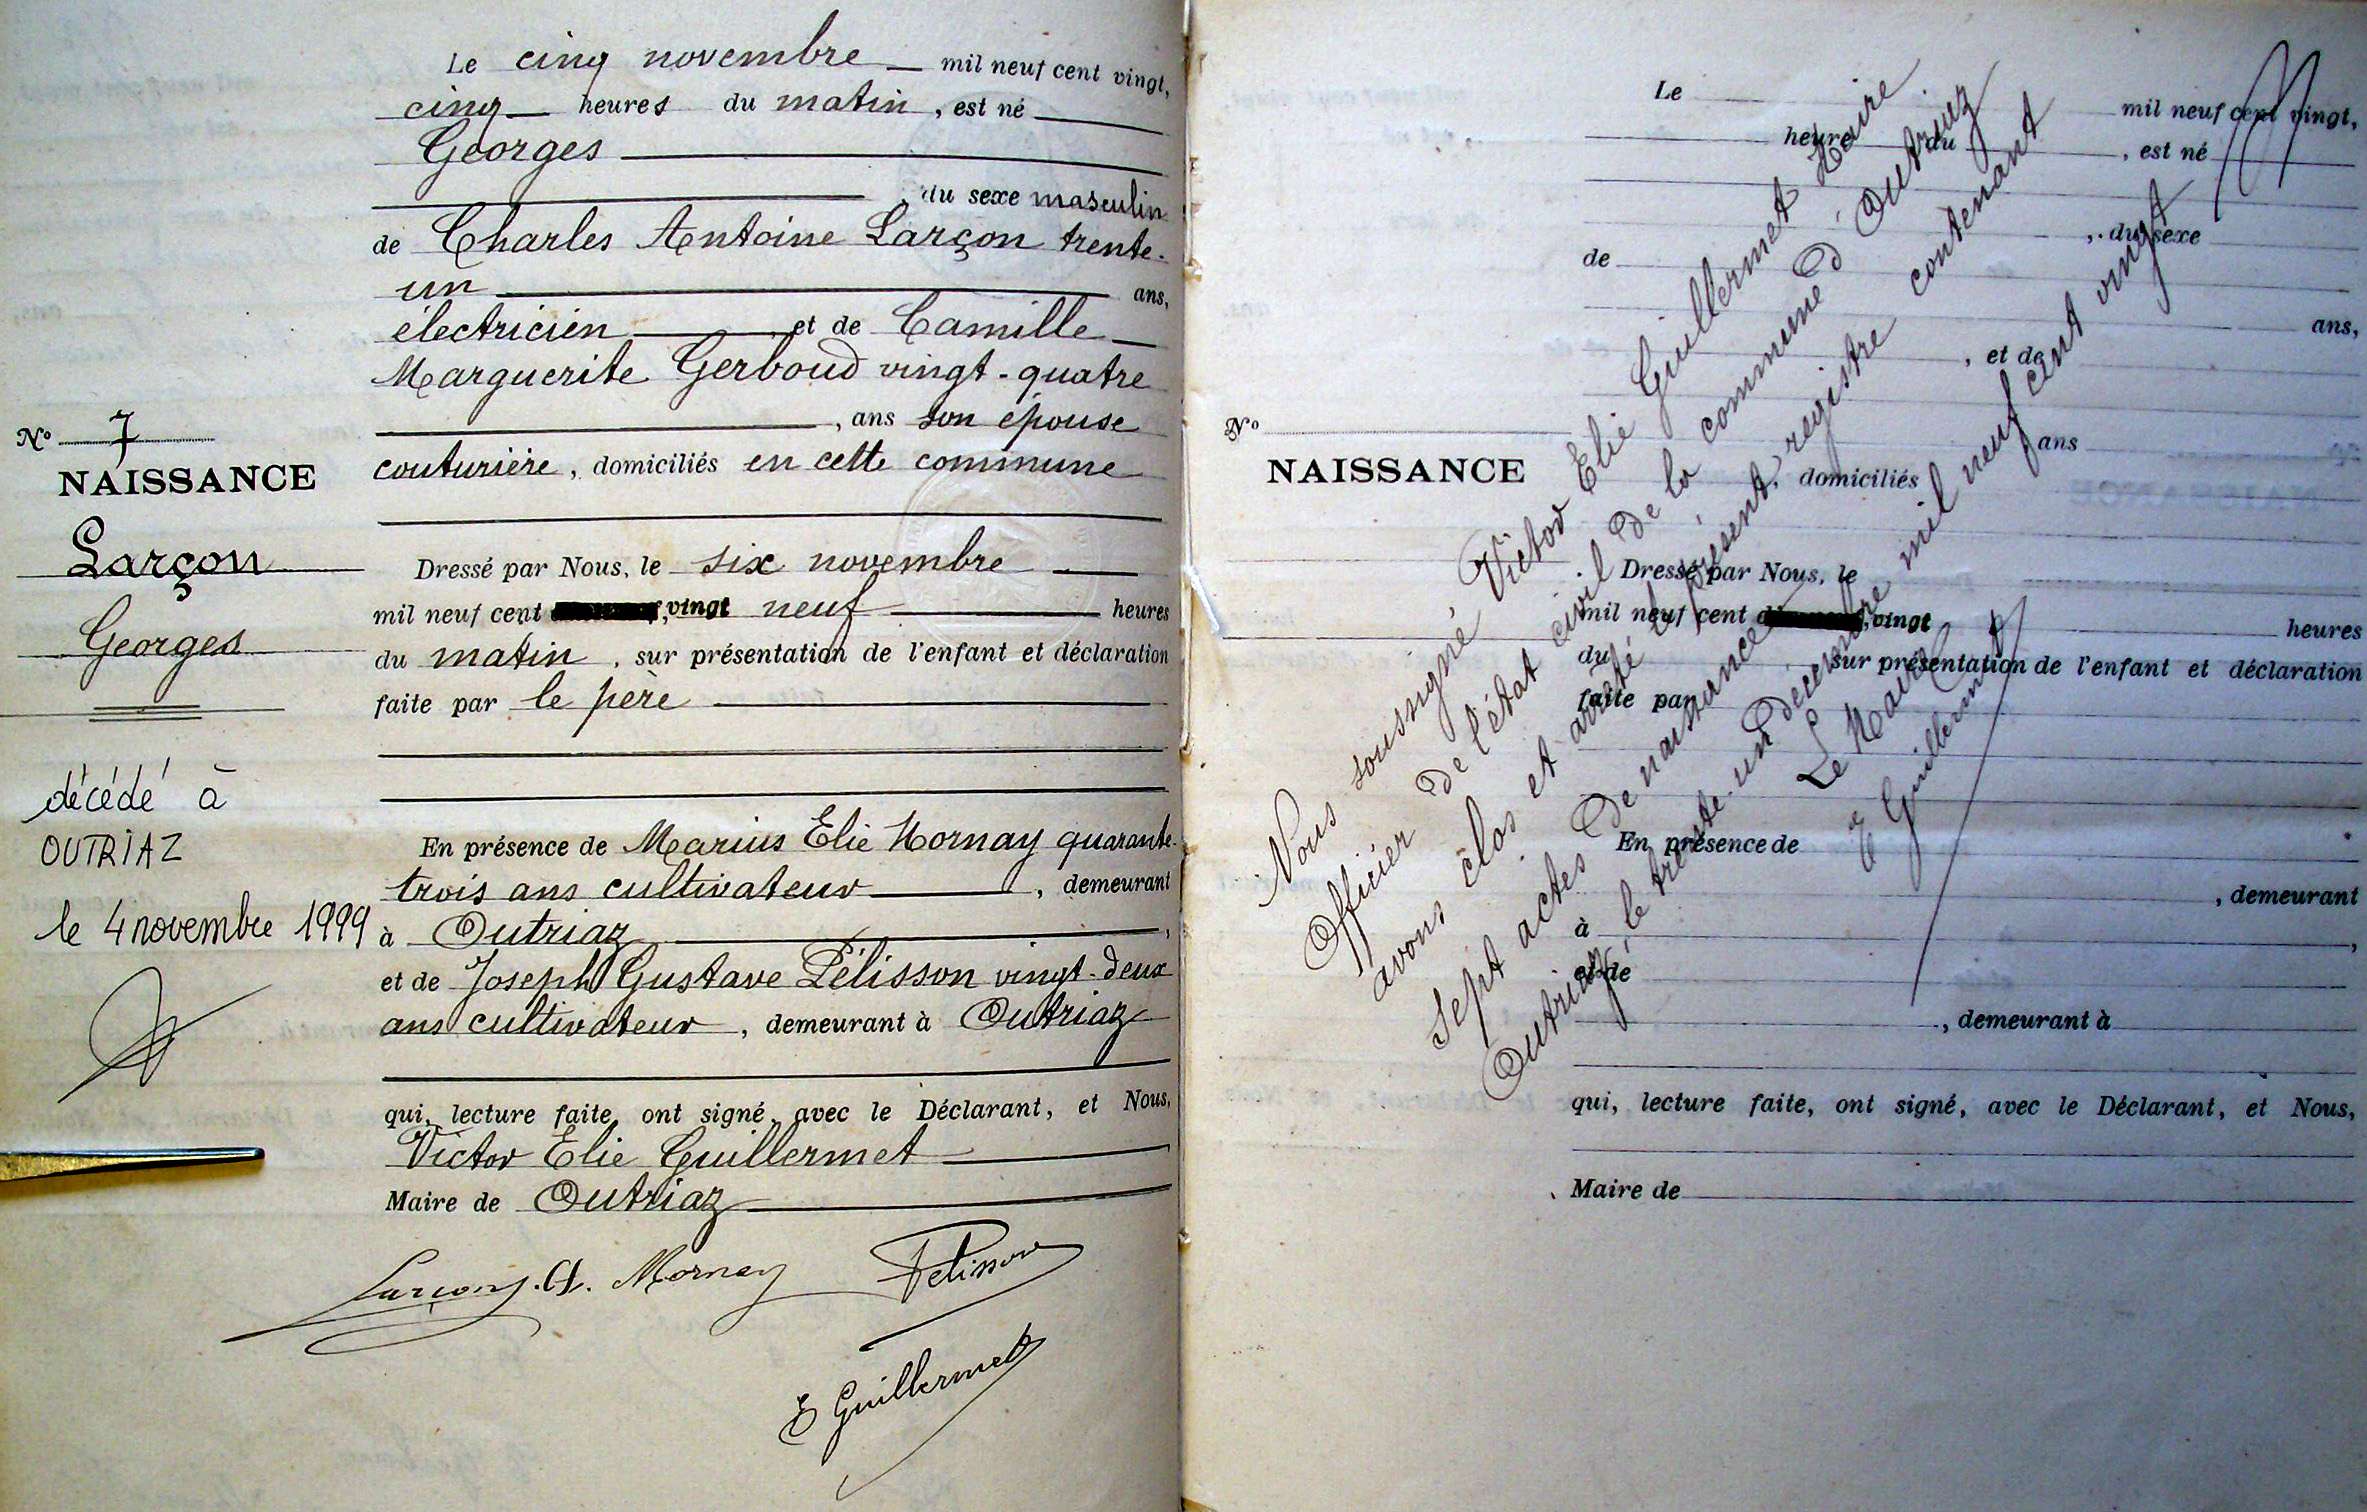 Le cinq novembre mil neuf cent vingt,
cinq heures du matin, est né
Georges
, du sexe masculin
de Charles Antoine Larçon trente-
un ans,
électricien et de Camille
Marguerite Gerboud vingt-quatre
, ans son épouse
couturière, domiciliés en cette commune
N° 7
NAISSANCE
Larçon
Georges
décédé à
OUTRIAZ
le 4 novembre 1999
Dressé par Nous, le six novembre
mil neuf cent vingt neuf heures
du matin, sur présentation de l'enfant et déclaration
faite par le père
En présence de Marius Elie Mornay quarante-
trois ans cultivateur, demeurant
à Outriaz,
et de Joseph Gustave Pélisson vingt-deux
ans cultivateur, demeurant à Outriaz
qui, lecture faite, ont signé, avec le Déclarant, et Nous,
Victor Elie Guillermet
Maire de Outriaz
Larçon A. Mornay Pelisson
E Guillermet
Le mil neuf cent vingt,
heure du , est né
, du sexe
de
ans,
, et de
ans
N°
NAISSANCE
, domiciliés
Dressé par Nous, le
mil neuf cent vingt heures
du sur présentation de l'enfant et déclaration
faite par
En présence de
, demeurant
à ,
et de
, demeurant à
qui, lecture faite, ont signé, avec le Déclarant, et Nous,
Maire de
Nous soussigné, Victor Elie Guillermet Maire
Officier de l'état civil de la commune d'Outriaz
avons clos et arrêté le présent registre contenant
sept actes de naissance
Outriaz, le trente-un décembre mil neuf cent vingt
Le Maire
E Guillermet